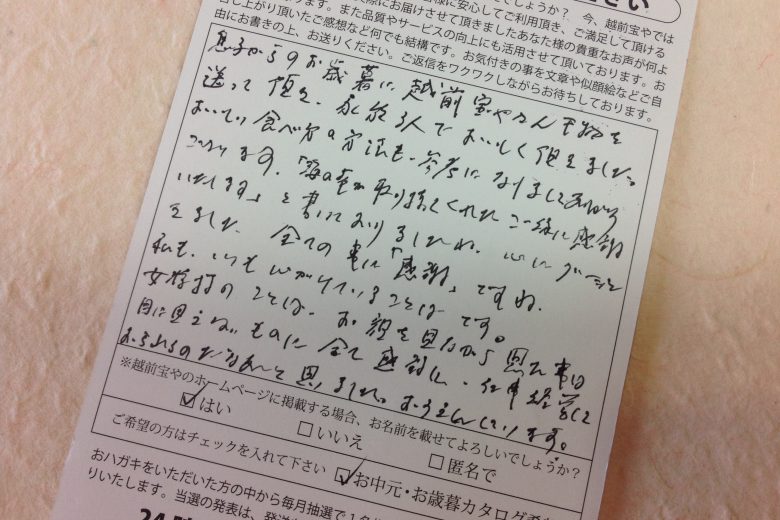 さい
でしょうか？ 今、越前宝やでは
皆様に安心してご利用頂き、ご満足して頂ける
際にお届けさせて頂きましたあなた様の貴重なお声が何よ
ます。また品質やサービスの向上にも活用させて頂いております。お
申し上がり頂いたご感想など何でも結構です。お気付きの事を文章や似顔絵などご自
由にお書きの上、お送りください。ご返信をワクワクしながらお待ちしております。
息子からのお歳暮に越前宝やさん干物を
送って頂き、家族3人でおいしく頂きました。
おいしい食べ方の方法も、参考になりましてありがとう
ございます。「海の幸が取り持ってくれたご縁に感謝
いたします」と書いてありましたね。心にグーンと
きました 全ての事に「感謝」ですね。
私も、いつも心がけていることばです。
女将さんのことば、お顔を見ながら思た事は
目に見えないものに全て感謝し、仕事経営して
おられるのだなあと思いました。おうえんしています。
※越前宝やのホームページに掲載する場合、お名前を載せてよろしいでしょうか？
はい
いいえ
匿名で
ご希望の方はチェックを入れて下さい
お中元・お歳暮カタログ希
おハガキをいただいた方の中から毎月抽選で1名
りいたします。当選の発表は、発送